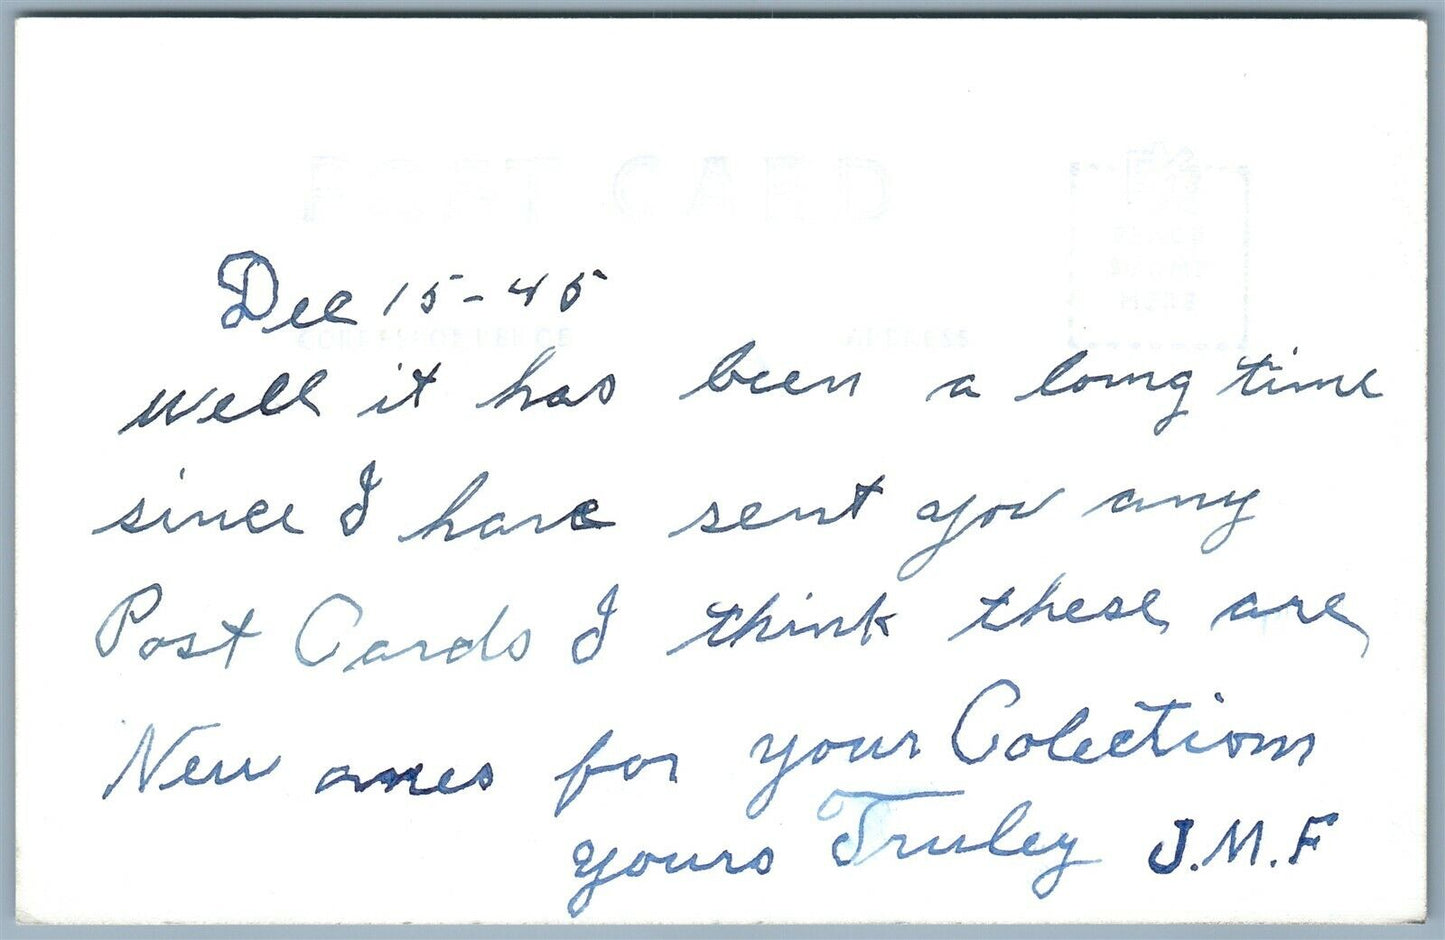 POST CARD
PLACE
STAMP
HERE
CORRESPONDENCE
ADDRESS
Dec 15-45
well it has been a long time
since I have sent you any
Post Cards I think these are
New ones for your Colection
yours Truley J.M.F